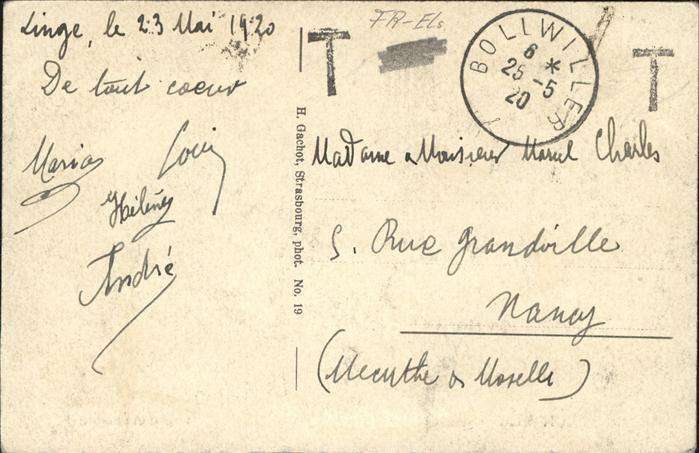 Linge, le 23 Mai 1920
De tout coeur
Maria Louis
Hélène
André
H. Gachot, Strasbourg, phot. No. 19
T
FR-Els
BOLLWILLER
6 *
25 -5
20
T
Madame & Monsieur Marcel Charles
5. Rue Grandville
Nancy
(Meurthe & Moselle)